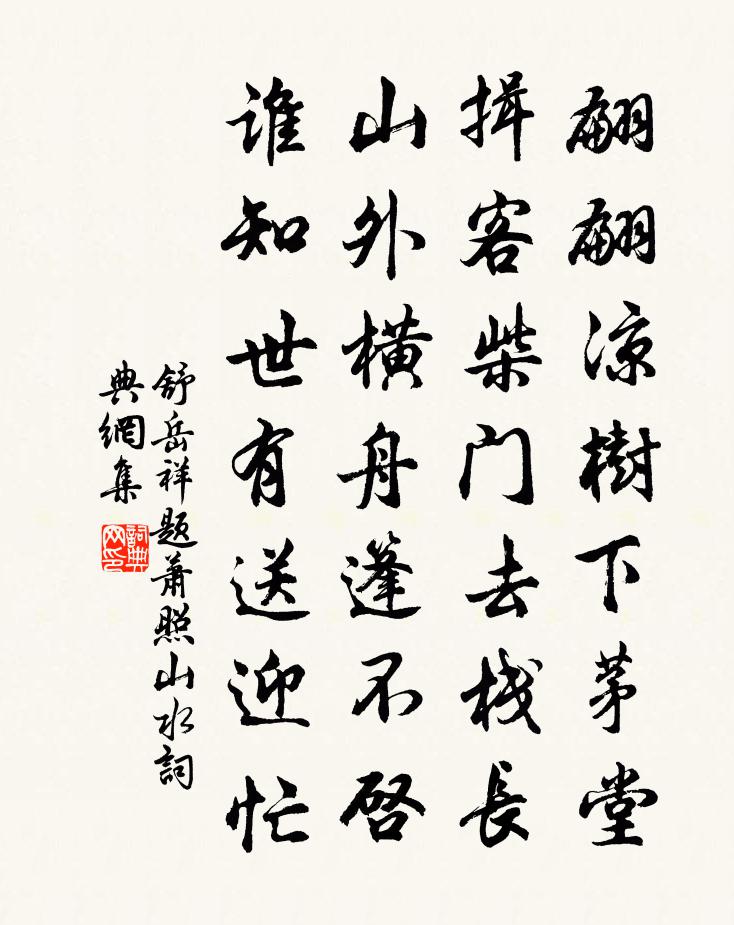 翩翩涼樹下茅堂
揖客柴門去棧長
山外橫舟篷不啓
誰知世有送迎忙
舒岳祥題蕭照山水詞
典網集
詞典網印